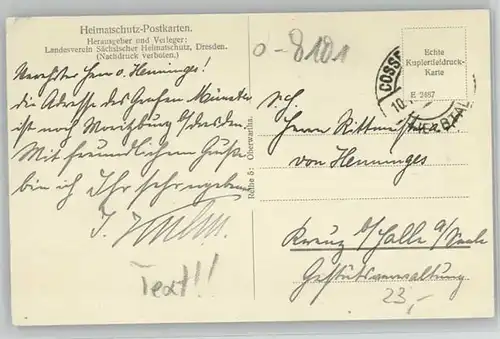 Heimatschutz-Postkarten.
Herausgeber und Verleger:
Landesverein Sächsischer Heimatschutz, Dresden.
(Nachdruck verboten.)
0-8101
Verehrter Herr v. Henninges!
die Adresse des Grafen
ist noch Moritzburg b/Dresden.
Mit freundlichem Gruße
bin ich Ihr sehr ergebener
Text!!!
Reihe 5: Oberwartha.
COSSE
10.
Echte
Kupfertiefdruck-
Karte
E 2467
S. H.
Herrn Rittmeister
von Henninges
Kreuz b/Halle a/Saale
Gestütsverwaltung
23,-